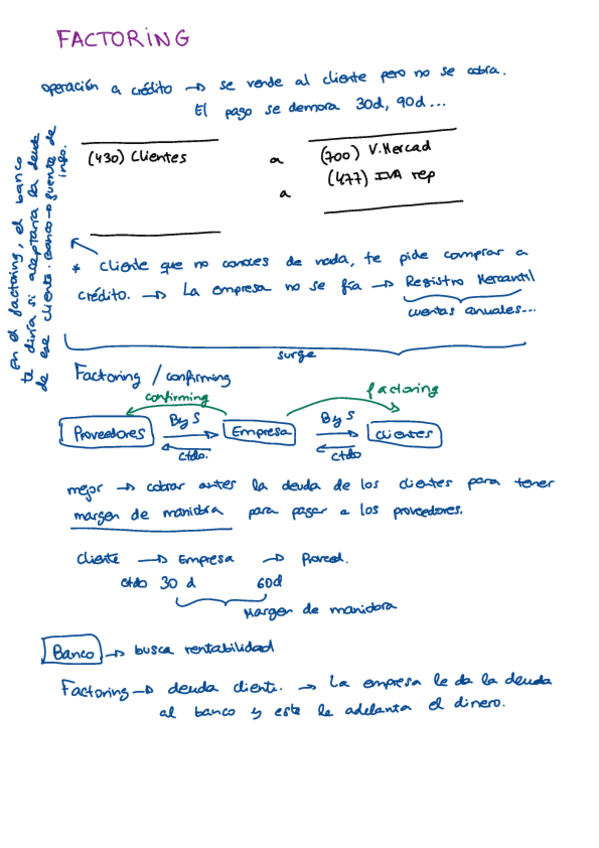 FACTORING
operación a crédito → se vende al cliente pero no se cobra.
El pago se demora 30d, 90d...
En el factoring, el banco
te diría si aceptaría la deuda
de ese cliente. Banco → fuente de
info.
(430) Clientes a (700) V.Mercad
a (477) IVA rep
* cliente que no conoces de nada, te pide comprar a
crédito. → La empresa no se fía → Registro Mercantil
cuentas anuales...
surge
Factoring / confirming
confirming factoring
Proveedores B y S Empresa B y S clientes
Ctdo. Ctdo
mejor → cobrar antes la deuda de los clientes para tener
margen de maniobra para pagar a los proveedores.
cliente → Empresa → Proved.
Ctdo 30 d 60d
Margen de maniobra
Banco → busca rentabilidad
Factoring → deuda client. → La empresa le da la deuda
al banco y este le adelanta el dinero.